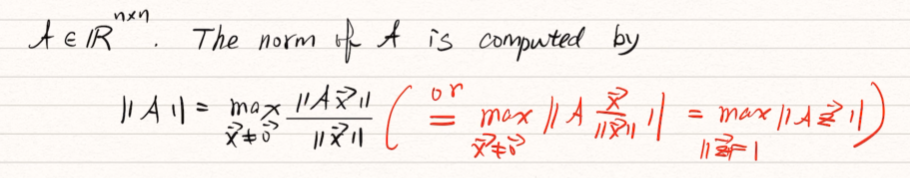 A ∈ ℝⁿˣⁿ. The norm of A is computed by
‖A‖ = max_{x⃗≠0⃗} ‖Ax⃗‖ / ‖x⃗‖ ( or = max_{x⃗≠0⃗} ‖A x⃗/‖x⃗‖‖ = max_{‖z⃗‖=1} ‖Az⃗‖ )